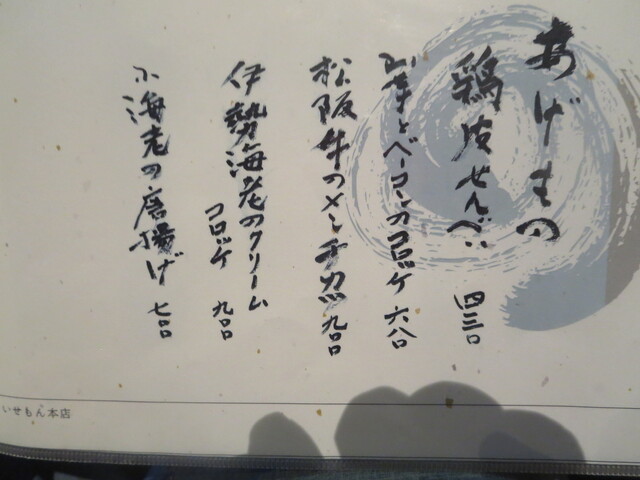 あげもの
鶏皮せんべい 四三〇
山芋とベーコンのコロッケ 六八〇
松阪牛のメンチカツ 九〇〇
伊勢海老のクリーム
コロッケ 九〇〇
小海老の唐揚げ 七〇〇
いせもん本店